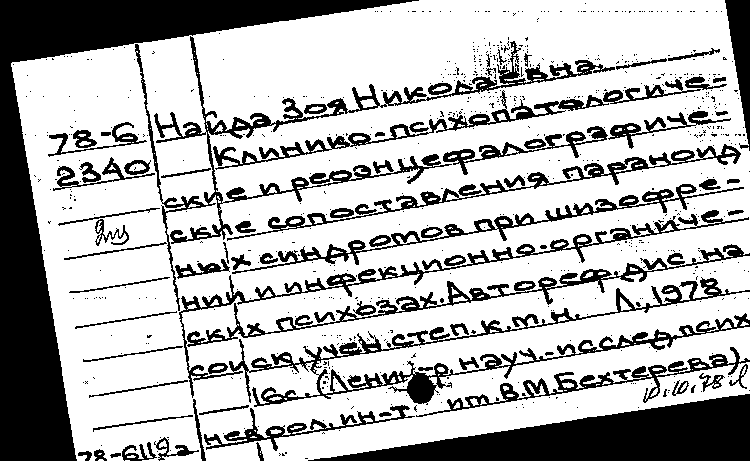 78-6 Найда, Зоя Николаевна.
2340 Клинико-психопатологиче-
ские и реоэнцефалографиче-
ские сопоставления параноид-
ных синдромов при шизофре-
нии и инфекционно-органиче-
ских психозах. Автореф. дис. на
соиск. учен. степ. к.м.н. Л., 1978.
16с. (Ленингр. науч.-исслед. психо
неврол. ин-т им. В.М.Бехтерева).
10.10.78
78-6119а